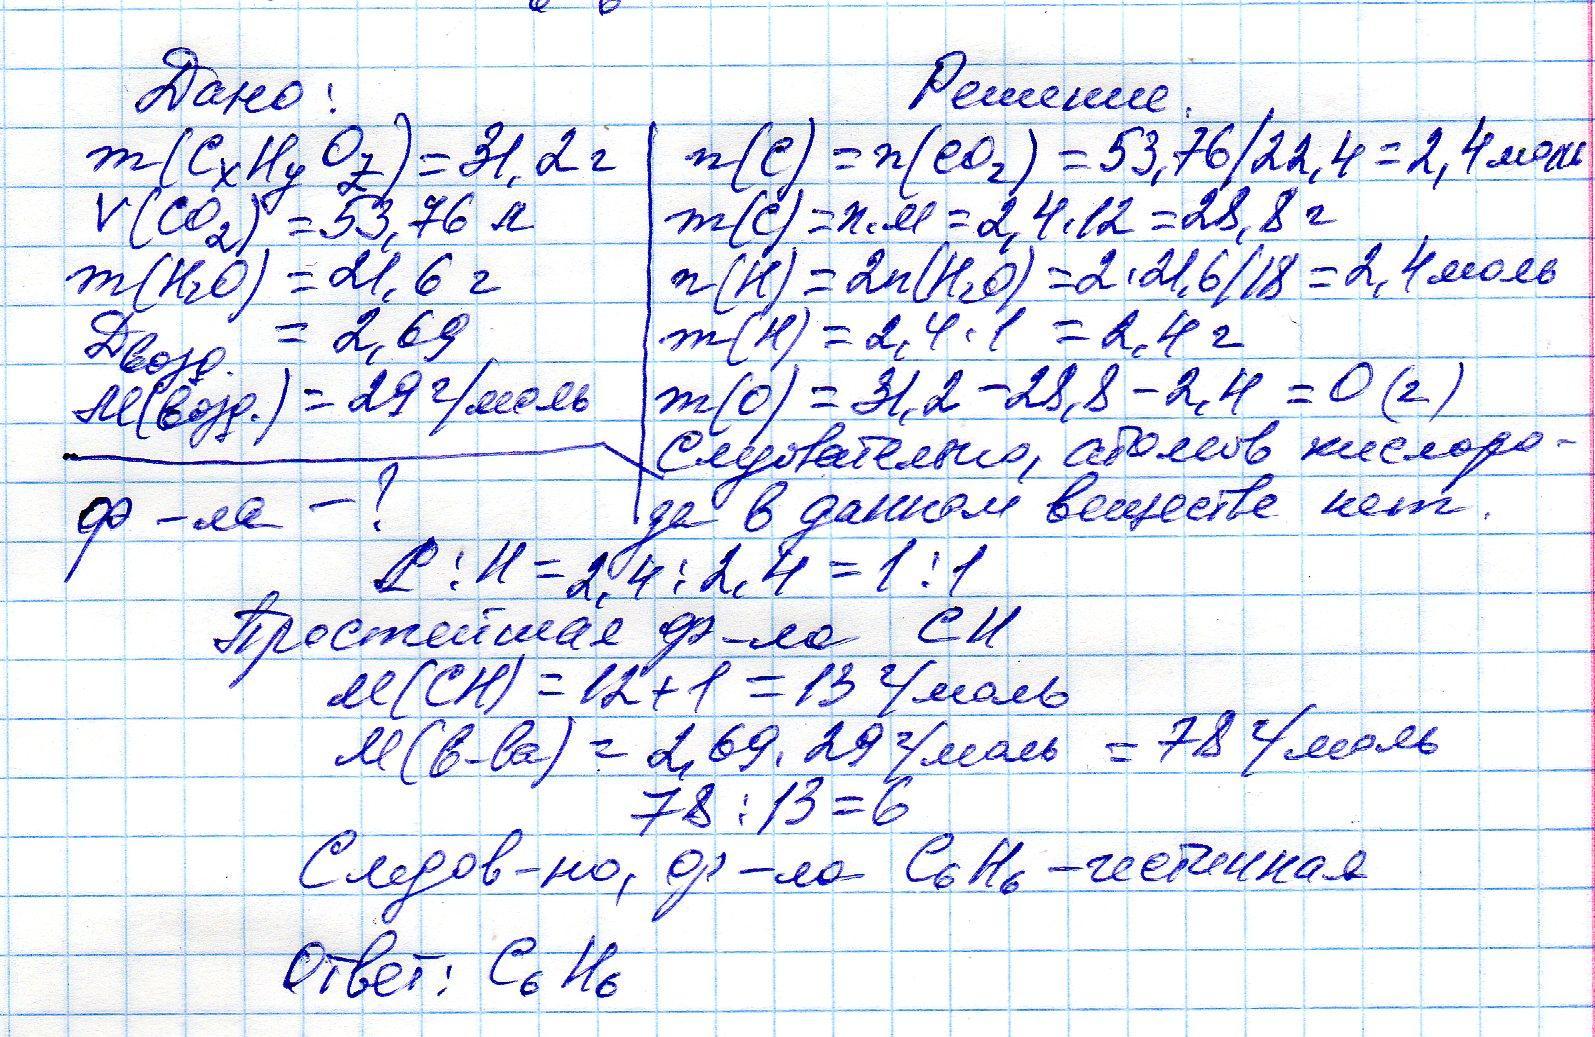 Дано:
m(CxHyOz) = 31,2 г
V(CO2) = 53,76 л
m(H2O) = 21,6 г
Dвозд. = 2,69
M(возд.) = 29 г/моль
ф-ла - ?
Решение.
n(C) = n(CO2) = 53,76/22,4 = 2,4 моль
m(C) = n·M = 2,4·12 = 28,8 г
n(H) = 2n(H2O) = 2·21,6/18 = 2,4 моль
m(H) = 2,4·1 = 2,4 г
m(O) = 31,2 - 28,8 - 2,4 = 0 (г)
Следовательно, атомов кислоро-
да в данном веществе нет.
C : H = 2,4 : 2,4 = 1 : 1
Простейшая ф-ла CH
M(CH) = 12 + 1 = 13 г/моль
M(в-ва) = 2,69 · 29 г/моль = 78 г/моль
78 : 13 = 6
Следов-но, ф-ла C6H6 - истинная
Ответ: C6H6